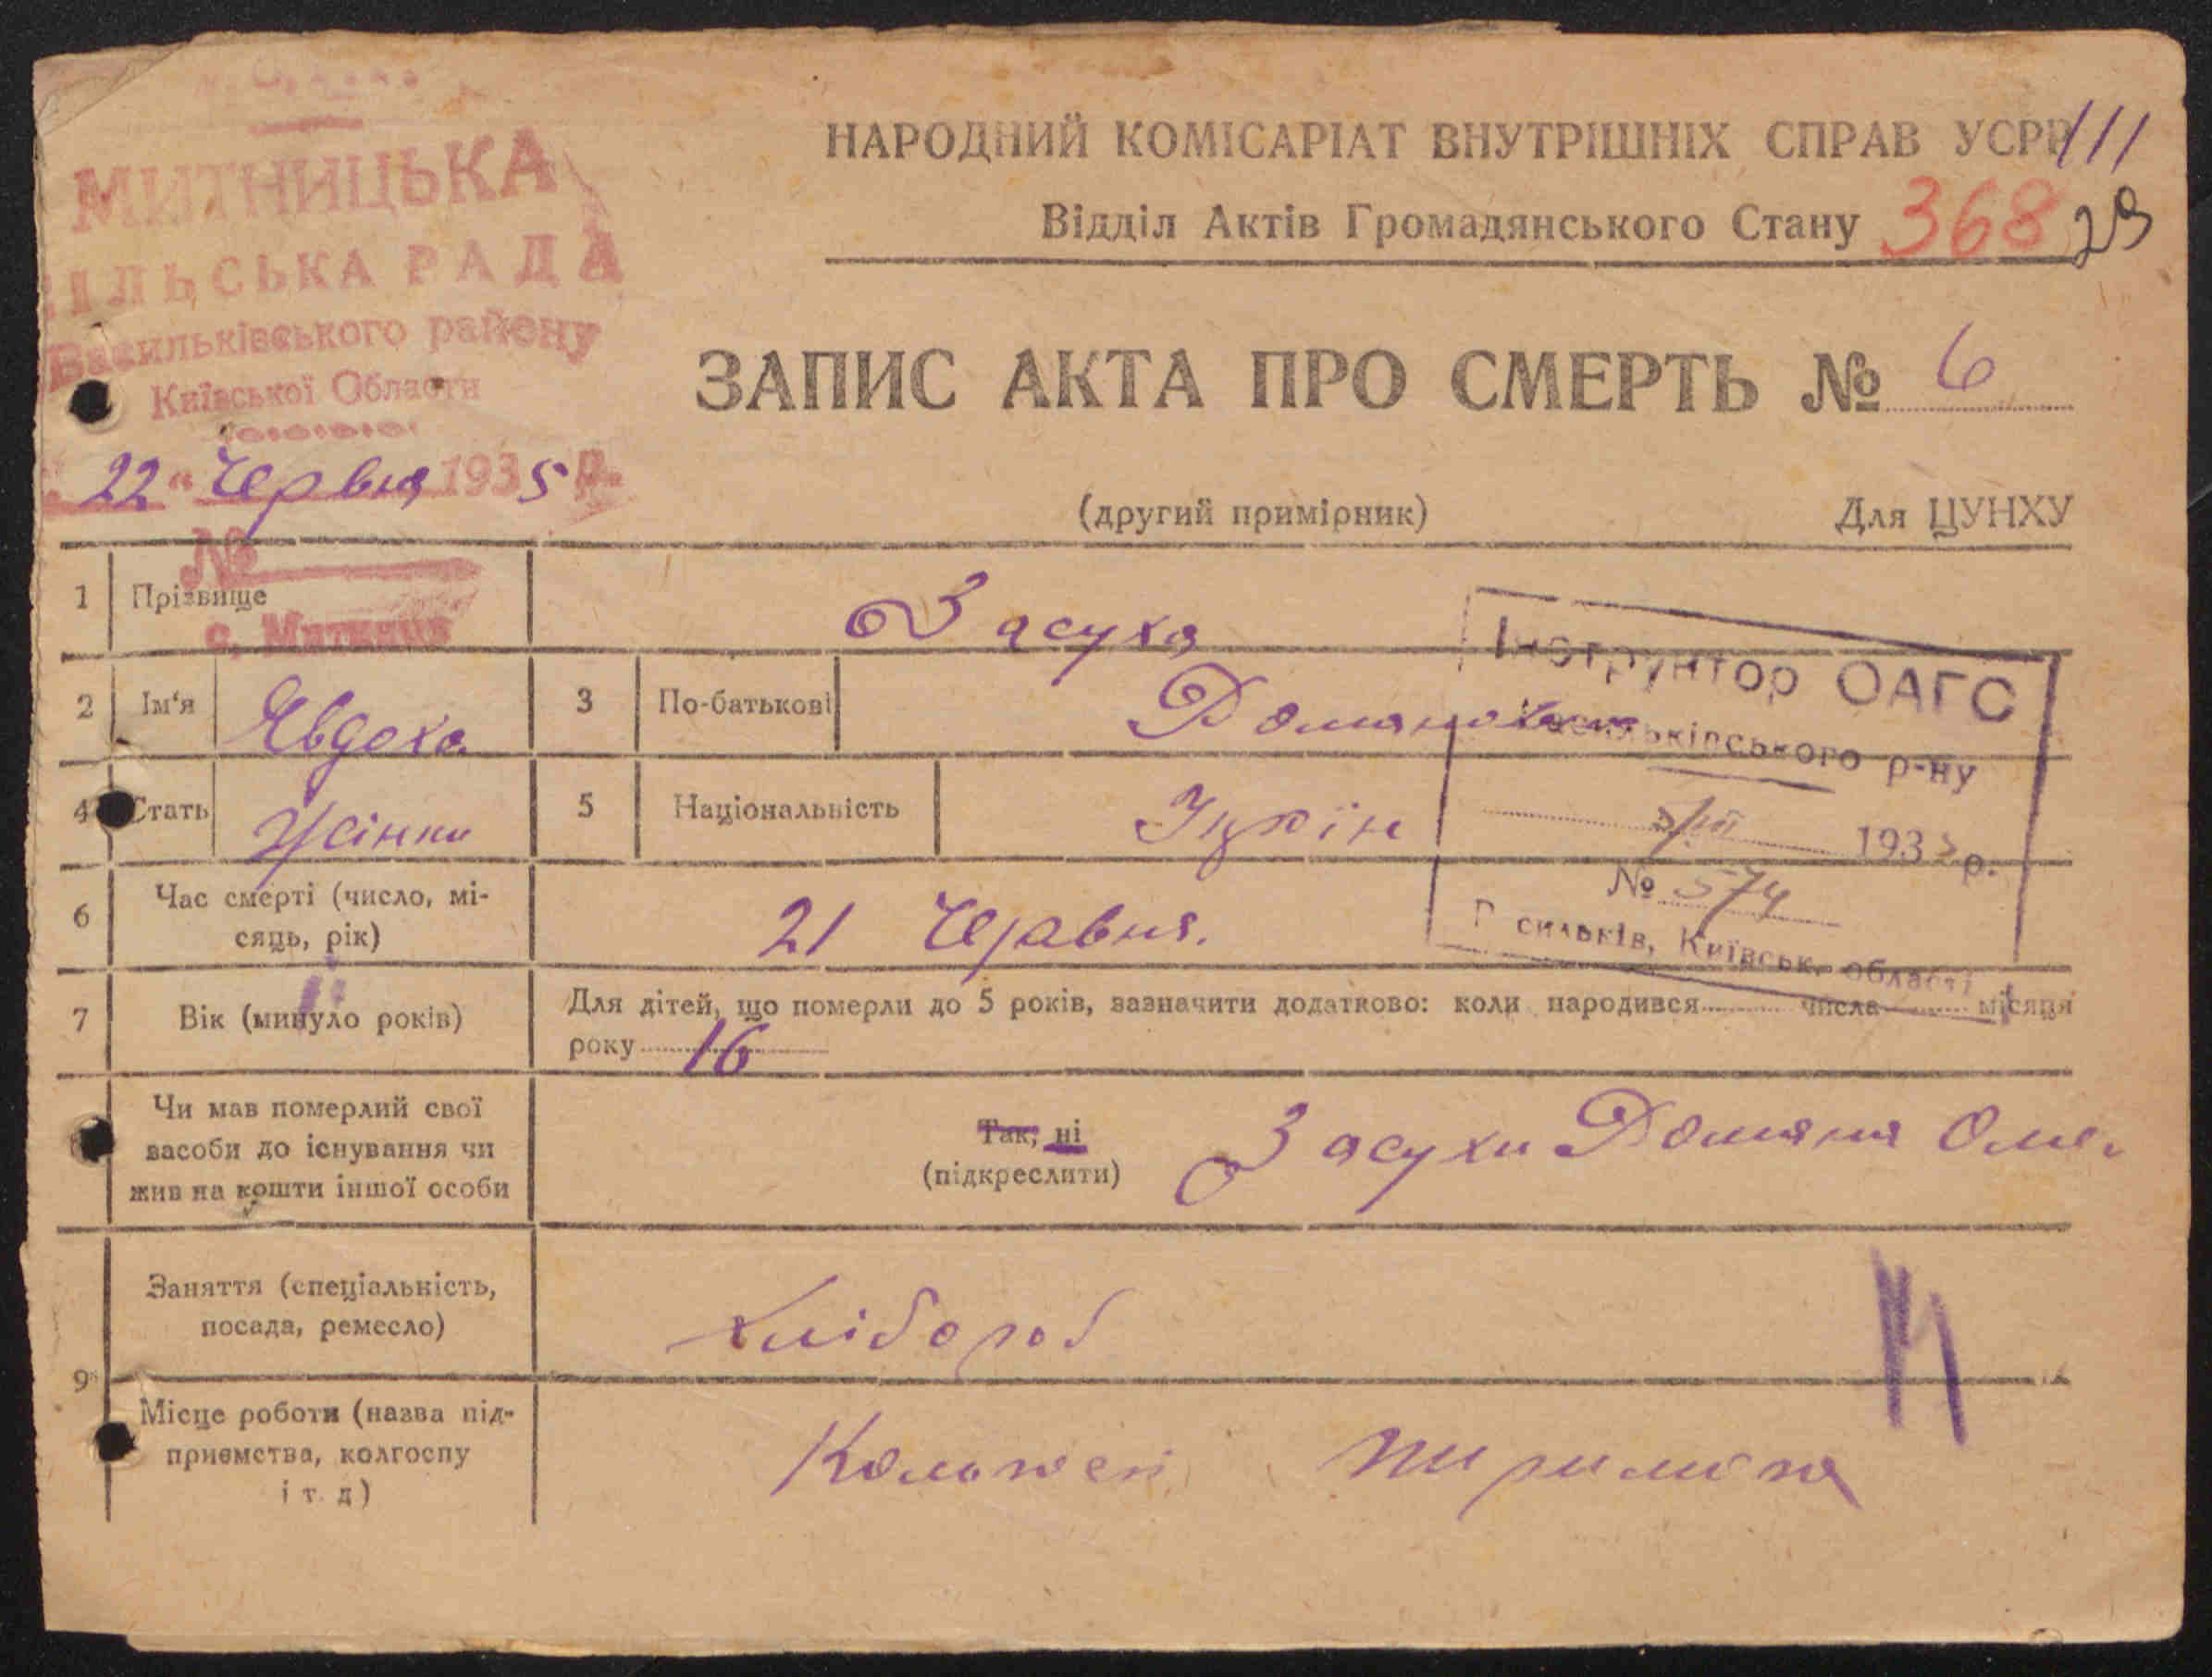 МИТНИЦЬКА
СІЛЬСЬКА РАДА
Васильківського району
Київської Области
22 " Червня 1935 р.
№
с. Митниця
НАРОДНИЙ КОМІСАРІАТ ВНУТРІШНІХ СПРАВ УСРР
111
Відділ Актів Громадянського Стану
368 29
ЗАПИС АКТА ПРО СМЕРТЬ № 6
(другий примірник) Для ЦУНХУ
1 Прізвище Засуха
Інструктор ОАГС
Васильківського р-ну
5/VII 1935 р.
№ 574
Васильків, Київськ. області
2 Ім'я Явдоха 3 По-батькові Домановна
4 Стать Жінки 5 Національність Україн
6 Час смерті (число, мі-
сяць, рік) 21 Червня.
7 Вік (минуло років) Для дітей, що померли до 5 років, зазначити додатково: коли народився числа місяця
року 16
Чи мав померлий свої
засоби до існування чи
жив на кошти іншої особи
Так, ні
(підкреслити)
Засухи Домана Оме.
Заняття (спеціальність,
посада, ремесло) хлібороб
9
Місце роботи (назва під-
приємства, колгоспу
і т. д)